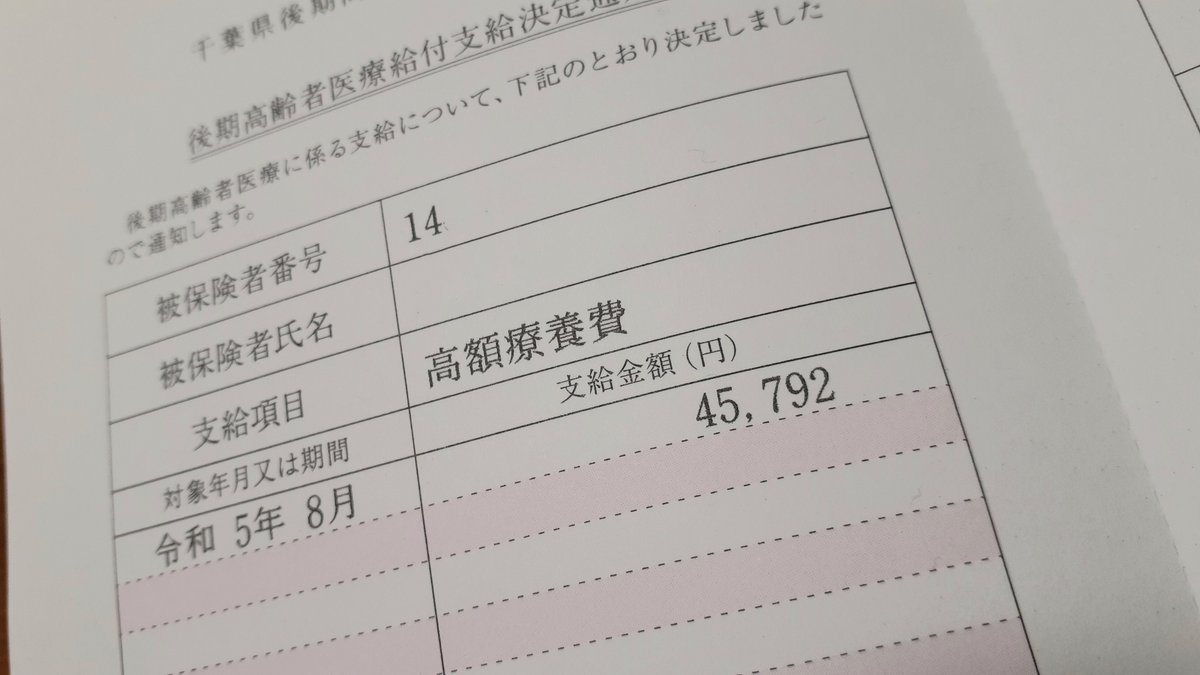 千葉県後期高
後期高齢者医療給付支給決定通
後期高齢者医療に係る支給について、下記のとおり決定しました
ので通知します。
被保険者番号 14
被保険者氏名
支給項目 高額療養費
対象年月又は期間 支給金額(円)
令和 5年 8月 45,792